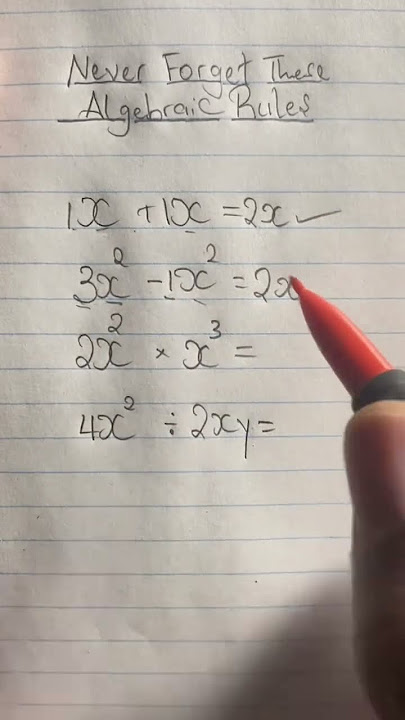 Never Forget These
Algebraic Rules
1x + 1x = 2x ✓
3x² - 1x² = 2x
2x² × x³ =
4x² ÷ 2xy =